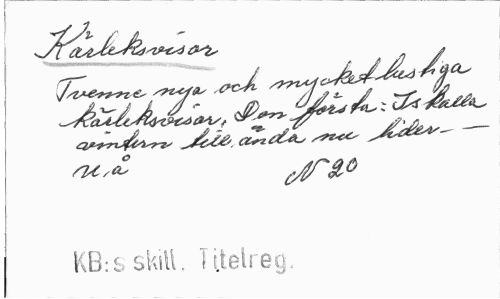 Kärleksvisor
Tvenne nya och mycket lustiga
kärleksvisor. Den första: Iskalla
vintern till ända nu lider - -
U.å N 20
KB:s skill. Titelreg.